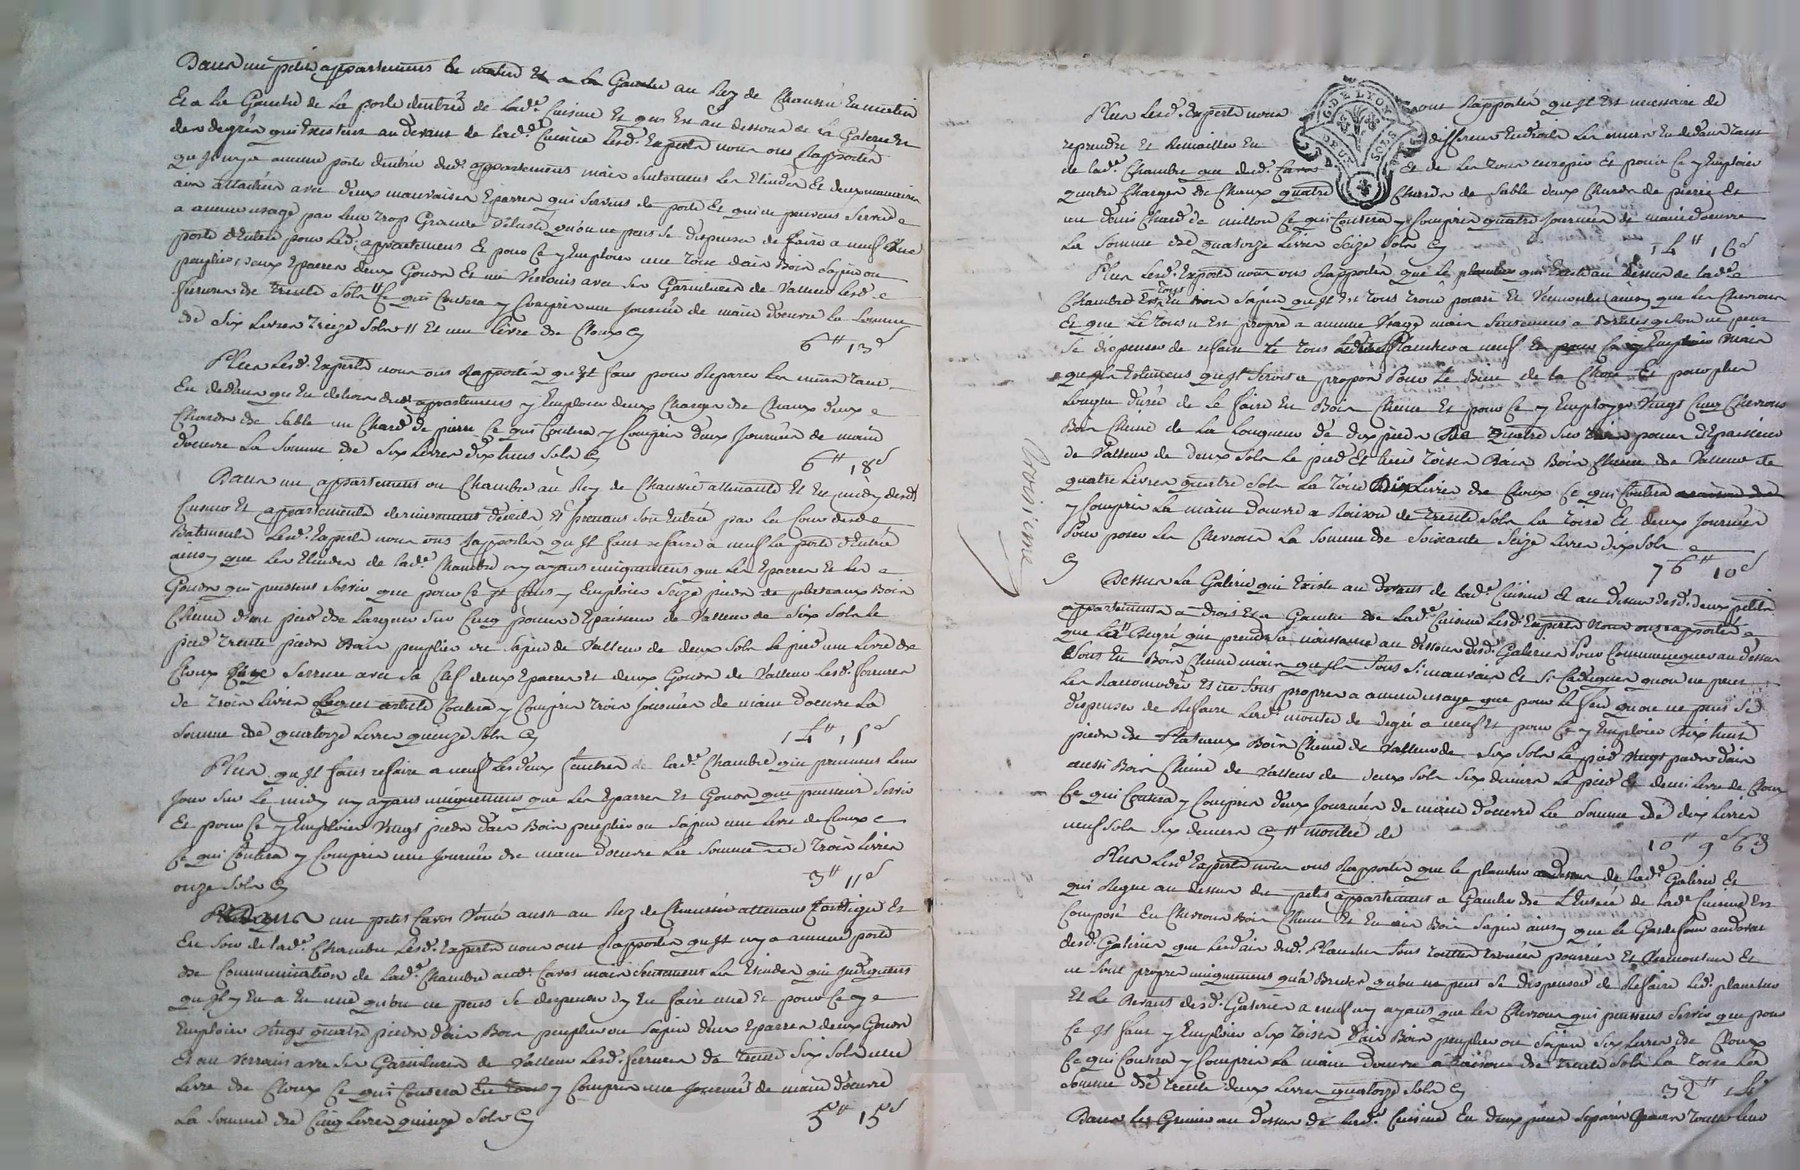 Dans un petit appartement en matin et a la Gauche au Rez de Chaussé en matin
Et a la Gauche de la porte dentreé de lade Cuisine Et qui Est au dessous de la Galerie Et
des degrés qui Existent au devant de lade Cuisine lesd. Experts nous ont Rapportés
qu Jl ny a aucune porte dentreé dud. appartement mais seulement les Etendes Et deux mauvais
ais attachés avec deux mauvaises Eparres qui servent de porte Et qui ne peuvent servir
a aucun usage par leur trop Grande vetusté qu'on ne peut se dispenser de faire a neuf une
porte d'Entreé pour led. appartement Et pour Ce y Emploier une Toise d'ais Bois sapin ou
peuplier, deux Eparres deux Gonds Et un Verrouis avec ses Garnitures de Valleur lesd.
ferrures de trente sols Ce qui Coutera y Compris une Journeé de main d'oeuvre la somme
de six Livres treize sols Et une Livre de Cloux
6" 13s
Plus Lesd. Experts nous ont Rapportés qu Jl faut pour Reparer les murs tant
En dedans qu En dehors dud. appartement y Emploier deux Charges de Chaux deux
Chards de sable un Chard de pierre Ce qui Coutera y Compris deux Journeés de main
d'oeuvre La somme de six Livres dix huit sols
6" 18s
Dans un appartement ou Chambre au Rez de Chausseé attenante Et En midy desd.
Cuisine Et appartements dernierement decrits Et prenant son Entreé par la Cour desd.
Batiments Lesd. Experts nous ont Rapportés qu Jl faut refaire a neuf la porte d'Entreé
ainsy que les Etendes de lade Chambre ny ayant uniquement que les Eparres Et les
Gonds qui puissent servir que pour Ce Jl faut y Emploier seize pieds de plateaux Bois
Chene d'un pied de largeur sur Cinq pouces d'Epaisseur de Valleur de six sols le
pied trente pieds Bois peuplier ou sapin de Valleur de deux sols Le pied une Livre de
Cloux une serrure avec sa Clef deux Eparres Et deux Gonds de Valleur Lesd. ferrures
de trois Livres Coutera y Compris trois Journeés de main d'oeuvre La
somme de quatorze Livres quinze sols
14" 15s
Plus qu Jl faut refaire a neuf les deux fenetres de lade Chambre qui prennent leur
Jour sur le midy ny ayant uniquement que les Eparres Et Gonds qui puissent servir
Et pour Ce y Emploier vingt pieds d'ais Bois peuplier ou sapin une Livre de Cloux
Ce qui Coutera y Compris une Journeé de main d'oeuvre La somme de trois Livres
onze sols
3" 11s
Dans un petit Caveau Vouté aussi au Rez de Chausseé attenant Et
En soir de lade Chambre Lesd. Experts nous ont Rapportés qu Jl ny a aucune porte
de Communication de lade Chambre aud. Caveau mais seulement les Etendes qui Jndiquent
qu Jl y En a Eu une qu'on ne peut se dispenser d'y En faire une Et pour Ce y
Emploier vingt quatre pieds d'ais Bois peuplier ou sapin deux Eparres deux Gonds
Et un Verrouis avec ses Garnitures de Valleur Lesd. ferrures de trente six sols une
Livre de Cloux Ce qui Coutera y Compris une Journeé de main d'oeuvre
La somme de Cinq Livres quinze sols
5" 15s
G. DE LYON
DEUX SOLS
Plus Lesd. Experts nous ont Rapportés qu Jl Est necessaire de
reprendre Et Remailler En differents Endroits les murs En dedans tant
de lade Chambre que dud. Caveau Et de les tous recrepir Et pour Ce y Emploier
quatre Charges de Chaux quatre Chards de sable deux Chards de pierres Et
un demi Chard de millon Ce qui Coutera y Compris quatre Journeés de main d'oeuvre
La somme de quatorze Livres seize sols
14" 16s
Plus Lesd. Experts nous ont Rapportés que le plancher qui Existe au dessus de lade
Chambre Est tous En bois sapin qu Jl Est tous troué pourri Et Vermoulu ainsy que les Chevrons
Et que le tous n'Est propre a aucun usage mais seulement a Bruler qu'on ne peut
se dispenser de refaire le tous a neuf mais
qu Jls Estiment qu Jl seroit a propos pour le Bien de la Chose Et pour plus
Longue dureé de le faire En Bois Chene Et pour Ce y Employer vingt Cinq Chevrons
Bois Chene de la Longueur de dix pieds quatre sur trois pouces d'Epaisseur
de Valleur de deux sols le pied Et huit toises d'ais Bois Chene de Valleur de
quatre Livres quatre sols La toise Dix Livres de Cloux Ce qui Coutera
y Compris la main d'oeuvre a Raison de trente sols la toise Et deux Journeés
Pour poser les Chevrons La somme de soixante seize Livres dix sols
76" 10s
troisieme
Dessus La Galerie qui Existe au devant de lade Cuisine Et au dessus desd. deux petits
appartements a droit Et a Gauche de lade Cuisine Lesd. Experts nous ont rapportés
que les degrés qui prennent naissance au dessous desd. Galeries pour Communiquer au dessus
sont En Bois Chene mais qu Jls sont si mauvais Et si Caducques qu'on ne peut
les Raccomoder Et ne sont propres a aucun usage que pour le feu qu'on ne peut se
dispenser de Refaire lesd. monteé de degré a neuf Et pour Ce y Emploier dix huit
pieds de Plateaux Bois Chene de Valleur de six sols le pied vingt pieds d'ais
aussi Bois Chene de Valleur de deux sols six deniers le pied Et demi Livre de Cloux
Ce qui Coutera y Compris deux Journeés de main d'oeuvre la somme de dix Livres
neuf sols six deniers
10" 9s 6d
Plus Lesd. Experts nous ont Rapportés que le plancher dessus de lade Galerie Et
qui Regne au dessus du petit appartement a Gauche de L'Entreé de lade Cuisine Est
Composé En Chevrons Bois Chene Et En ais Bois sapin ainsy que le Gardefour au devant
desd. Galeries que lesd. ais dud. Plancher sont toutes troueés pourries Et Vermoulues Et
ne sont propre uniquement qu'a Bruler qu'on ne peut se dispenser de Refaire led. plancher
Et le Devant desd. Galeries a neuf ny ayant que les Chevrons qui puissent servir que pour
Ce Jl faut y Emploier six toises d'ais Bois peuplier ou sapin six Livres de Cloux
Ce qui Coutera y Compris la main d'oeuvre a Raison de trente sols la toise La
somme de trente deux Livres quatorze sols
32" 14s
Dans les Grenier au dessus de lesd. Cuisine En deux pieces separeés